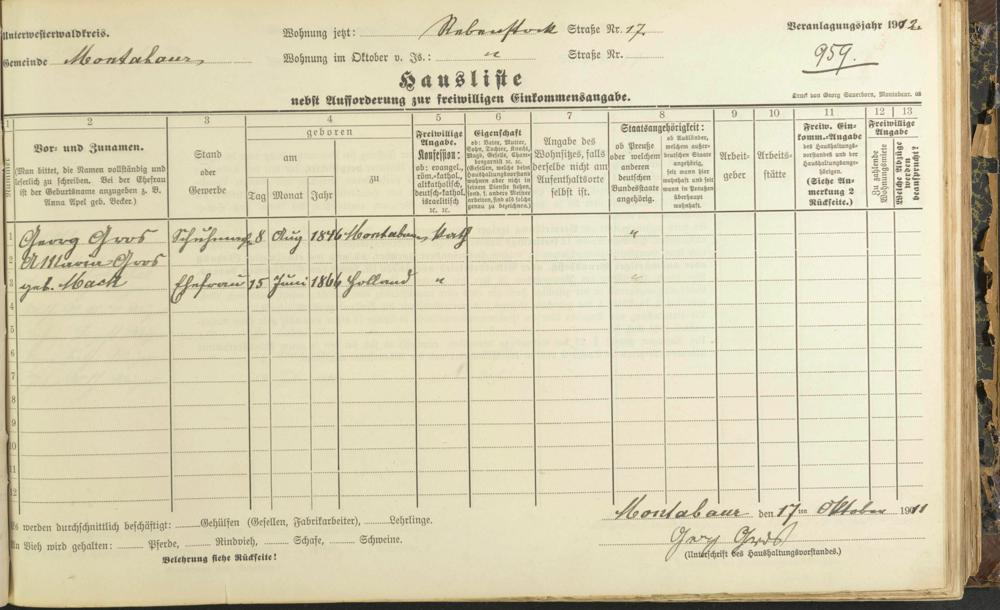 Unterwesterwaldkreis.
Wohnung jetzt: Rebenstock Straße Nr. 17.
Veranlagungsjahr 1912.
Gemeinde Montabaur
Wohnung im Oktober v. Js.: " Straße Nr.
959.
Hausliste
nebst Aufforderung zur freiwilligen Einkommensangabe.
Druck von Georg Sauerborn, Montabaur.
1 2 3 4 5 6 7 8 9 10 11 12 13
Nummer
Vor- und Zunamen.
(Man bittet, die Namen vollständig und
leserlich zu schreiben. Bei der Ehefrau
ist der Geburtsname anzugeben z. B.
Anna Apel geb. Becker.)
Stand
oder
Gewerbe
geboren
am
Tag Monat Jahr
zu
Freiwillige
Angabe.
Konfession:
ob: evangel.,
röm.-kathol.,
altkatholisch,
deutsch-kathol.
israelitisch
ꝛc. ꝛc.
Eigenschaft
ob: Vater, Mutter,
Sohn, Tochter, Knecht,
Magd, Geselle,
Angabe des
Wohnsitzes, falls
derselbe nicht am
Aufenthaltsorte
selbst ist.
Staatsangehörigkeit:
ob Preuße
oder welchem
anderen
deutschen
Bundesstaate
angehörig.
ob Ausländer,
welchem außer-
deutschen Staate
angehörig, seit
wann hier
wohnhaft und seit
wann in Preußen
überhaupt
wohnhaft.
Arbeit-
geber
Arbeits-
stätte
Freiw. Ein-
komm.-Angabe
des Haushaltungs-
vorstandes und der
Haushaltungsange-
hörigen.
(Siehe An-
merkung 2
Rückseite.)
Freiwillige
Angabe
Zu zahlende
Wohnungsmiete
Welche Abzüge
werden
beansprucht?
1 Georg Gros Schuhmach 8 Aug 1846 Montabaur, Kath "
2 A Maria Gros
3 geb. Mack Ehefrau 15 Juni 1866 Holland " "
4
5
6
7
8
9
10
11
12
Es werden durchschnittlich beschäftigt: Gehülfen (Gesellen, Fabrikarbeiter), Lehrlinge.
An Vieh wird gehalten: Pferde, Rindvieh, Schafe, Schweine.
Belehrung siehe Rückseite!
Montabaur den 17ten Oktober 1911
Georg Gros
(Unterschrift des Haushaltungsvorstandes.)